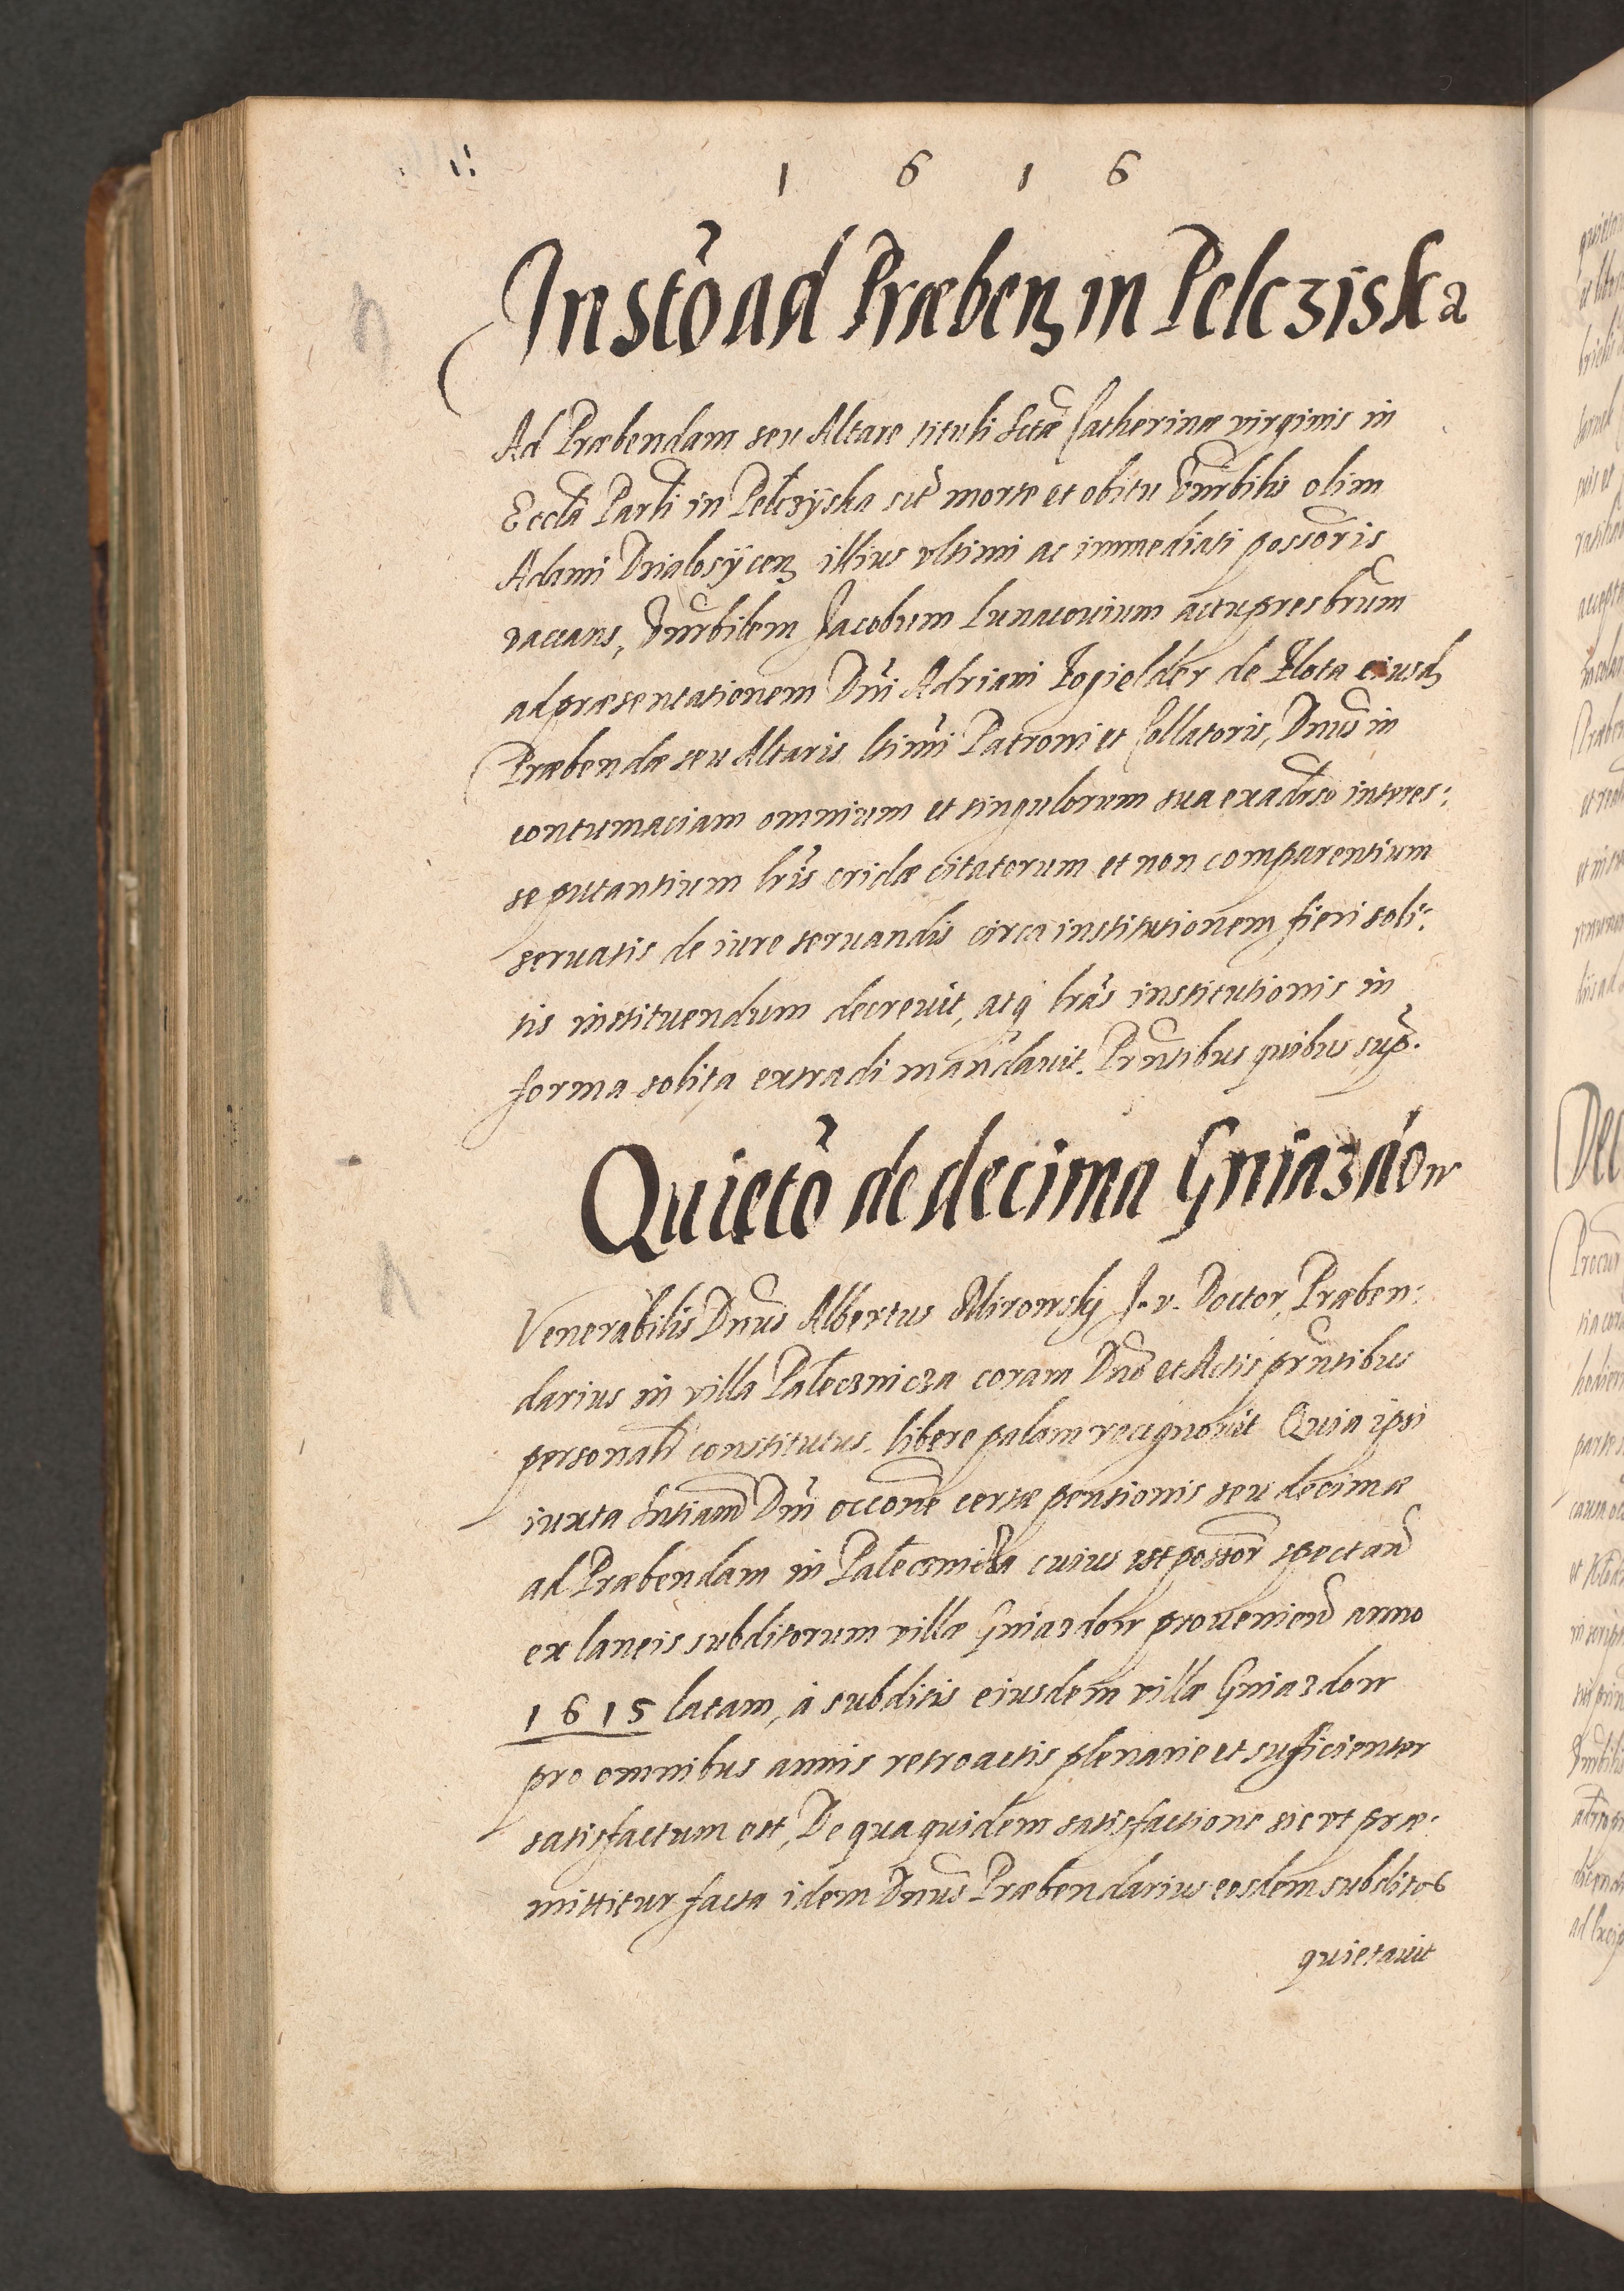 1 6 1 6
Instõ ad Præbenȝ in Pelcziska
Ad Præbendam seu Altare tituli Sctæ Catherinæ virginis in
Eccla Parli in Pelczÿska sit̃ morte et obitu Vnrbilis olim
Adami Dzialosÿcen illius vltimi ac immediati possoris
vacans, Vnrbilem Jacobum Lunacouium actu presbrum
ad præsentationem Dni Adriani de Flota eiusdȝ
Præbendæ seu Altaris ltimi Patroni et Collatoris, Dnus in
contumaciam omnium et singulorum sua exaduso interes:
se putantium lris cridæ citatorum et non comparentium
seruatis de iure seruandis circa institutionem fieri soli:
tis instituendum decreuit, atq lras institutionis in
forma solita extradi mandauit. Prntibus quibus sup̃.
Quietõ de decima Gniazdow
Venerabilis Dnus Albertus Mirowskÿ J. v. Doctor, Præben:
darius in villa Palecznicza coram Dno et Actis prntibus
personalr constitutus. libere palam recognouit Quia ipsi
iuxta sntiam Dni occone certæ pensionis seu decimæ
ad Præbendam in Palecznicza cuius est possor spectan
ex laneis subditorum villæ Gniazdow prouenien anno
1615 latam, à subditis eiusdem villæ Gniazdow
pro omnibus annis retroactis plenarie et suficienter
satisfactum est, De qua quidem satisfactione sic vt præ:
mittitur facta idem Dnus Præbendarius eosdem subditos
quietauit